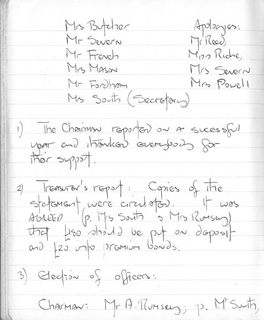 Mrs Butcher
Apologies:
Mr Severn
Mr Reed,
Mr French
Miss Riche,
Mrs Mason
Mrs Severn
Mr Fordham
Mrs Powell
Ms South (Secretary)
1) The Chairman reported on a sucessful
year and thanked everybody for
their support.
2) Treasurer's report: Copies of the
statement were circulated. It was
AGREED (p. Ms South s Mrs Rumsey)
that £180 should be put on deposit
and £20 into premium bonds.
3) Election of officers:
Chairman: Mr A. Rumsey, p. Ms South,